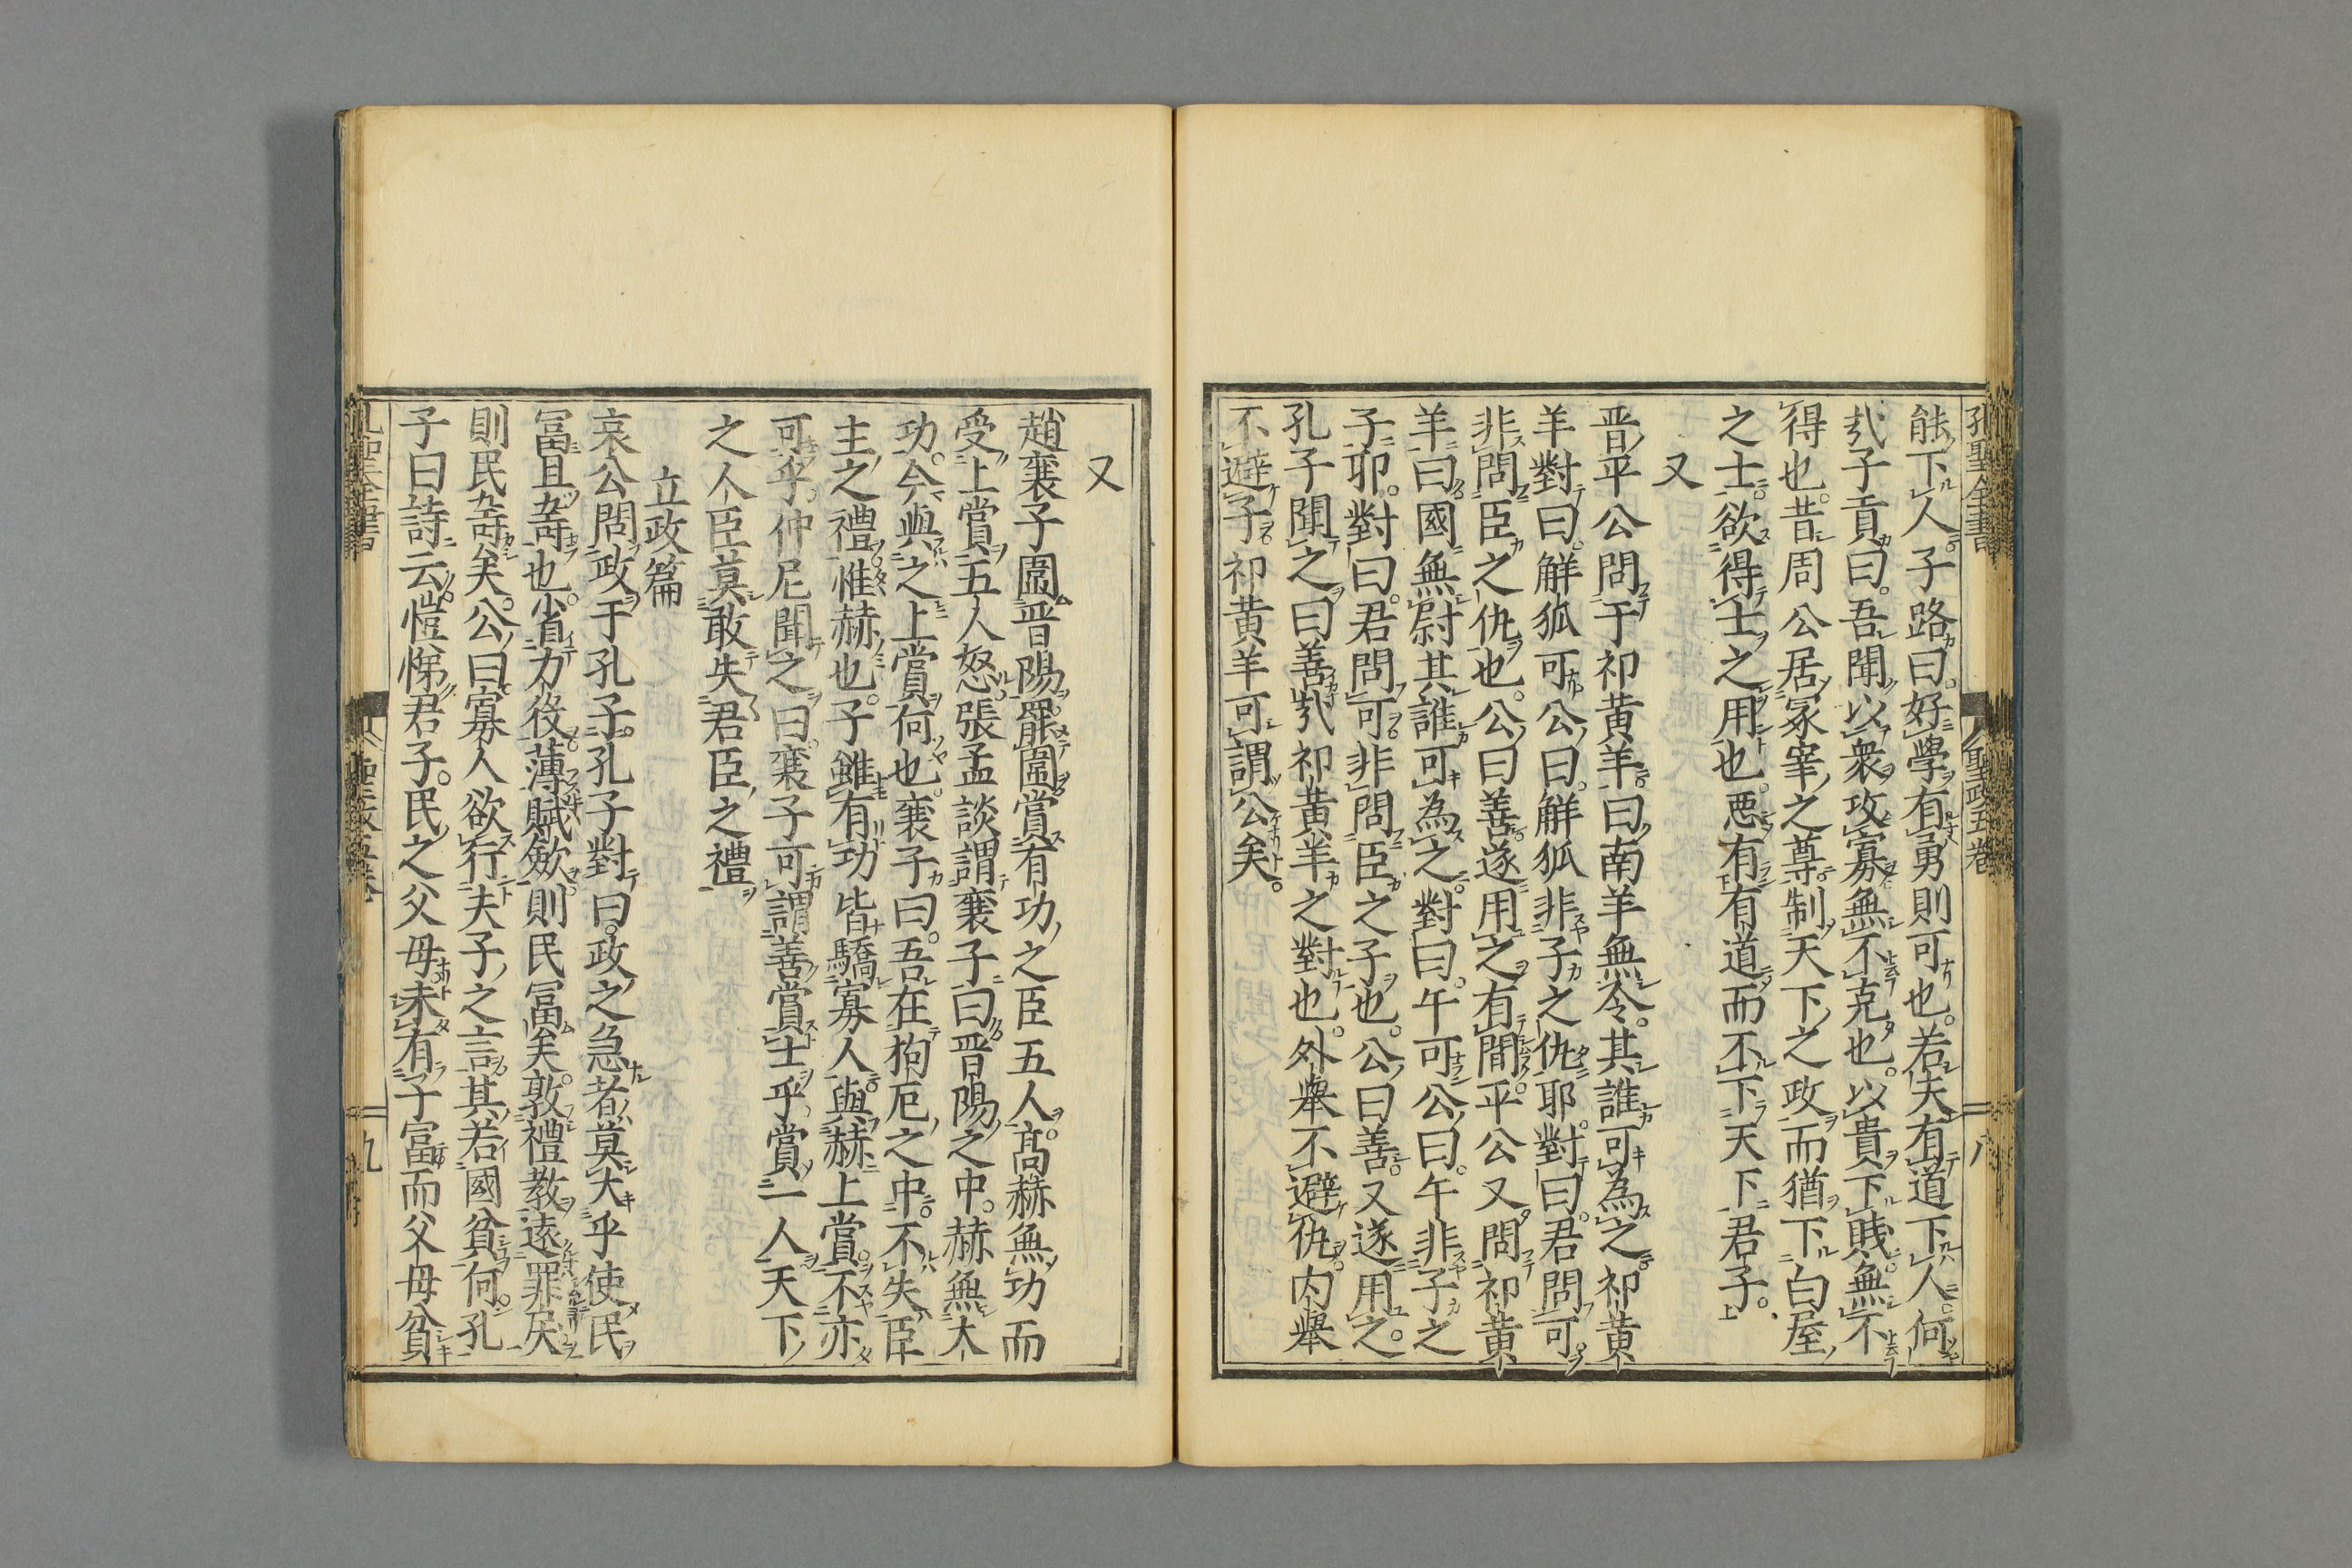 孔聖全書
聖政五卷
八
能下人子路曰好學有勇則可也若夫有道下人何
㢤子貢曰吾聞以衆攻寡無不克也以貴下賤無不
得也昔周公居冢宰之尊制天下之政而猶下白屋
之士欲得士之用也惡有有道而不下天下君子
又
晋平公問于祁黄羊曰南羊無令其誰可為之祁黄
羊對曰觧狐可公曰觧狐非子之仇耶對曰君問可
非問臣之仇也公曰善遂用之有間平公又問祁黄
羊曰國無尉其誰可為之對曰午可公曰午非子之
子耶對曰君問可非問臣之子也公曰善又遂用之
孔子聞之曰善㢤祁黄羊之對也外舉不避仇内舉
不避子祁黄羊可謂公矣
又
趙襄子圍晋陽罷圍賞有功之臣五人高赫無功而
受上賞五人怒張孟談謂襄子曰晋陽之中赫無大
功今與之上賞何也襄子曰吾在拘厄之中不失臣
主之禮惟赫也子雖有功皆驕寡人與赫上賞不亦
可乎仲尼聞之曰襄子可謂善賞士乎賞一人天下
之人臣莫敢失君臣之禮
立政篇
哀公問政于孔子孔子對曰政之急者莫大乎使民
冨且壽也省力役薄賦斂則民冨矣敦禮教遠罪戾
則民壽矣公曰寡人欲行夫子之言其若國貧何孔
子曰詩云愷悌君子民之父母未有子富而父母貧
九